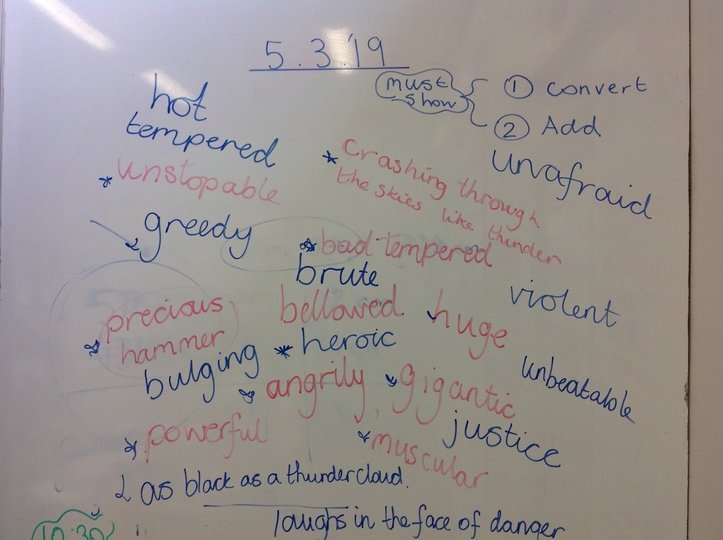 5.3.'19
must show
① convert
② Add
hot tempered
unstopable
crashing through
the skies like thunder
unafraid
greedy
bad tempered
brute
violent
precious hammer
bellowed
huge
heroic
bulging
unbeatable
angrily
gigantic
justice
powerful
muscular
as black as a thunder cloud.
laughs in the face of danger
10:30